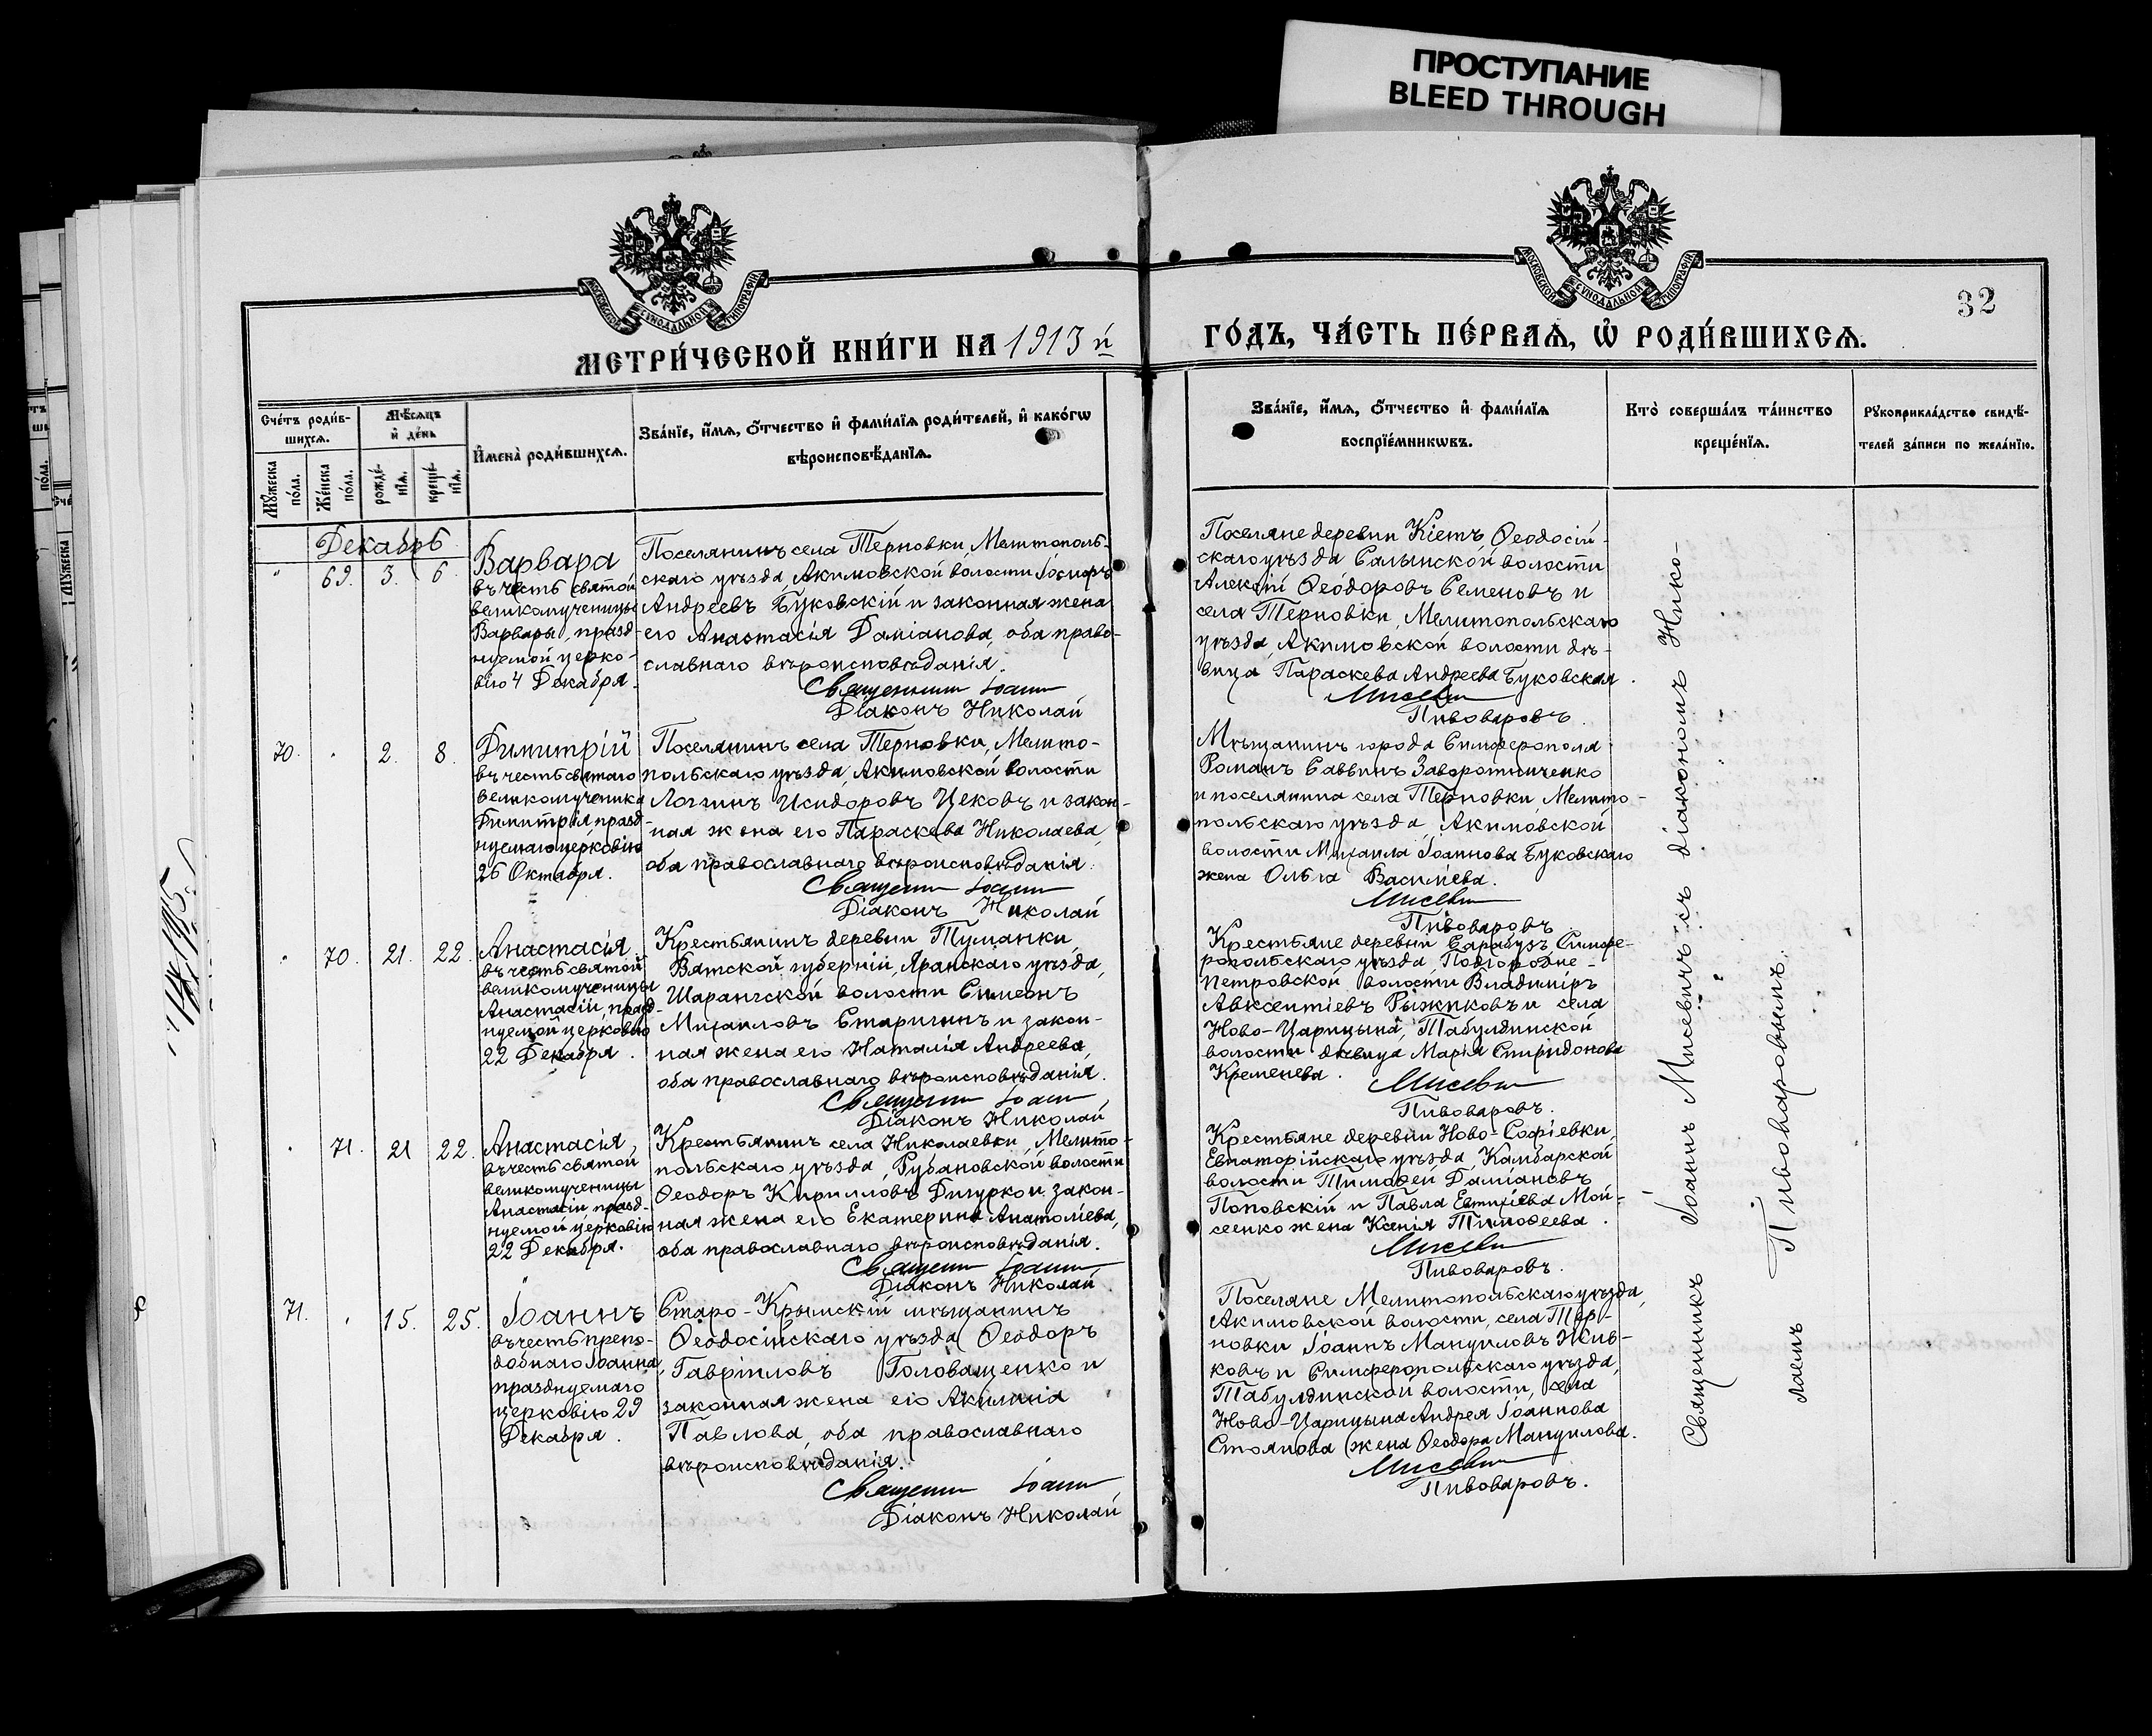 ПРОСТУПАНИЕ
BLEED THROUGH
МОСКОВСКОЙ СѴНОДАЛЬНОЙ ТИПОГРАФІИ
МОСКОВСКОЙ СѴНОДАЛЬНОЙ ТИПОГРАФІИ
32
МЕТРИ́ЧЕСКОЙ КНИ́ГИ НА 1913 й
ГО́ДЪ, ЧА́СТЬ ПЕ́РВАѦ, Ѡ҆ РОДИ́ВШИХСѦ.
Сче́тъ роди́в-
шихсѧ.
Мѣ́сѧцъ
и҆ де́нь
И҆мена̀ роди́вшихсѧ.
Зва́нїе, и҆́мѧ, ѻ҆́тчество и҆ фами́лїѧ роди́телей, и҆ како́гѡ
вѣроисповѣ́данїѧ.
Мꙋ́жеска
по́ла.
Же́нска
по́ла.
рожде́-
нїѧ.
креще́-
нїѧ.
Зва́нїе, и҆́мѧ, ѻ҆́тчество и҆ фами́лїѧ
воспрїе́мникѡвъ.
Кто̀ соверша́лъ та́инство
креще́нїѧ.
Рꙋкоприкла́дство свидѣ́-
телей за́писи по жела́нїю.
Декабрь
" 69. 3. 6.
Варвара
въ честь святой
великомученицы
Варвары, празд-
нуемой церко-
вію 4 Декабря.
Поселянинъ села Терновки, Мелитополь-
скаго уѣзда, Акимовской волости
Андреевъ Буковскій и законная жена
его Анастасія Даміанова, оба право-
славнаго вѣроисповѣданія.
Священник Іоанн
Діаконъ Николай
Поселяне деревни Кіетъ, Ѳеодосій-
скаго уѣзда Салынской волости
Алексій Ѳеодоровъ Семеновъ и
села Терновки, Мелитопольскаго
уѣзда, Акимовской волости дѣ-
вица Параскева Андреева Буковская.
Мисевич
Пивоваровъ.
70. " 2. 8.
Димитрій
въ честь святаго
великомученика
Димитрія, празд-
нуемаго церковію
26 Октября.
Поселянинъ села Терновки, Мелито-
польскаго уѣзда, Акимовской волости
Логгинъ Исидоровъ Цековъ и закон-
ная жена его Параскева Николаева,
оба православнаго вѣроисповѣданія.
Священник Іоанн
Діаконъ Николай
Мѣщанинъ города Симферополя
Романъ Саввинъ Заворотниченко
и поселянина села Терновки, Мелито-
польскаго уѣзда, Акимовской
волости Михаила Іоаннова Буковскаго
жена Ольга Васильева.
Мисевич
Пивоваровъ
" 70. 21. 22.
Анастасія
въ честь святой
великомученицы
Анастасіи, празд-
нуемой церковію
22 Декабря.
Крестьянинъ деревни Туманки,
Вятской губерніи, Яранскаго уѣзда,
Шарангской волости Симеонъ
Михаиловъ Старигинъ и закон-
ная жена его Наталія Андреева,
оба православнаго вѣроисповѣданія.
Священник Іоанн
Діаконъ Николай
Крестьяне деревни Сарабузъ Симфе-
ропольскаго уѣзда, Подгородне-
Петровской волости Владиміръ
Авксентіевъ Рыжиковъ и села
Ново-Царицына, Табулдинской
волости дѣвица Марія Спиридонова
Кременева.
Мисевич
Пивоваровъ.
" 71. 21 22.
Анастасія,
въ честь святой
великомученицы
Анастасіи, празд-
нуемой церковію
22 Декабря.
Крестьянинъ села Николаевки, Мелито-
польскаго уѣзда, Рубановской волости
Ѳеодоръ Кирилловъ Дигурко и закон-
ная жена его Екатерина Анатоліева,
оба православнаго вѣроисповѣданія.
Священник Іоанн
Діаконъ Николай
Крестьяне деревни Ново-Софіевки,
Евпаторійскаго уѣзда, Камбарской
волости Тимоѳей Даміановъ
Поповскій и Павла Евтихіева Мой-
сеенко жена Ксенія Тимоѳеева.
Мисевич
Пивоваровъ.
71. " 15. 25.
Іоаннъ
въ честь препо-
добнаго Іоанна,
празднуемаго
церковію 29
Декабря.
Старо-Крымскій мѣщанинъ
Ѳеодосійскаго уѣзда Ѳеодоръ
Гавріиловъ Головащенко и
законная жена его Акилина
Павлова, оба православнаго
вѣроисповѣданія.
Священник Іоанн
Діаконъ Николай
Поселяне Мелитопольскаго уѣзда,
Акимовской волости, села Тер-
новки Іоаннъ Мануиловъ Жив-
ковъ и Симферопольскаго уѣзда,
Табулдинской волости, села
Ново-Царицына Андрея Іоаннова
Стоянова жена Ѳеодора Мануилова.
Мисевич
Пивоваровъ.
Священникъ Іоаннъ Мисевичъ съ діакономъ Нико-
лаемъ Пивоваровымъ.